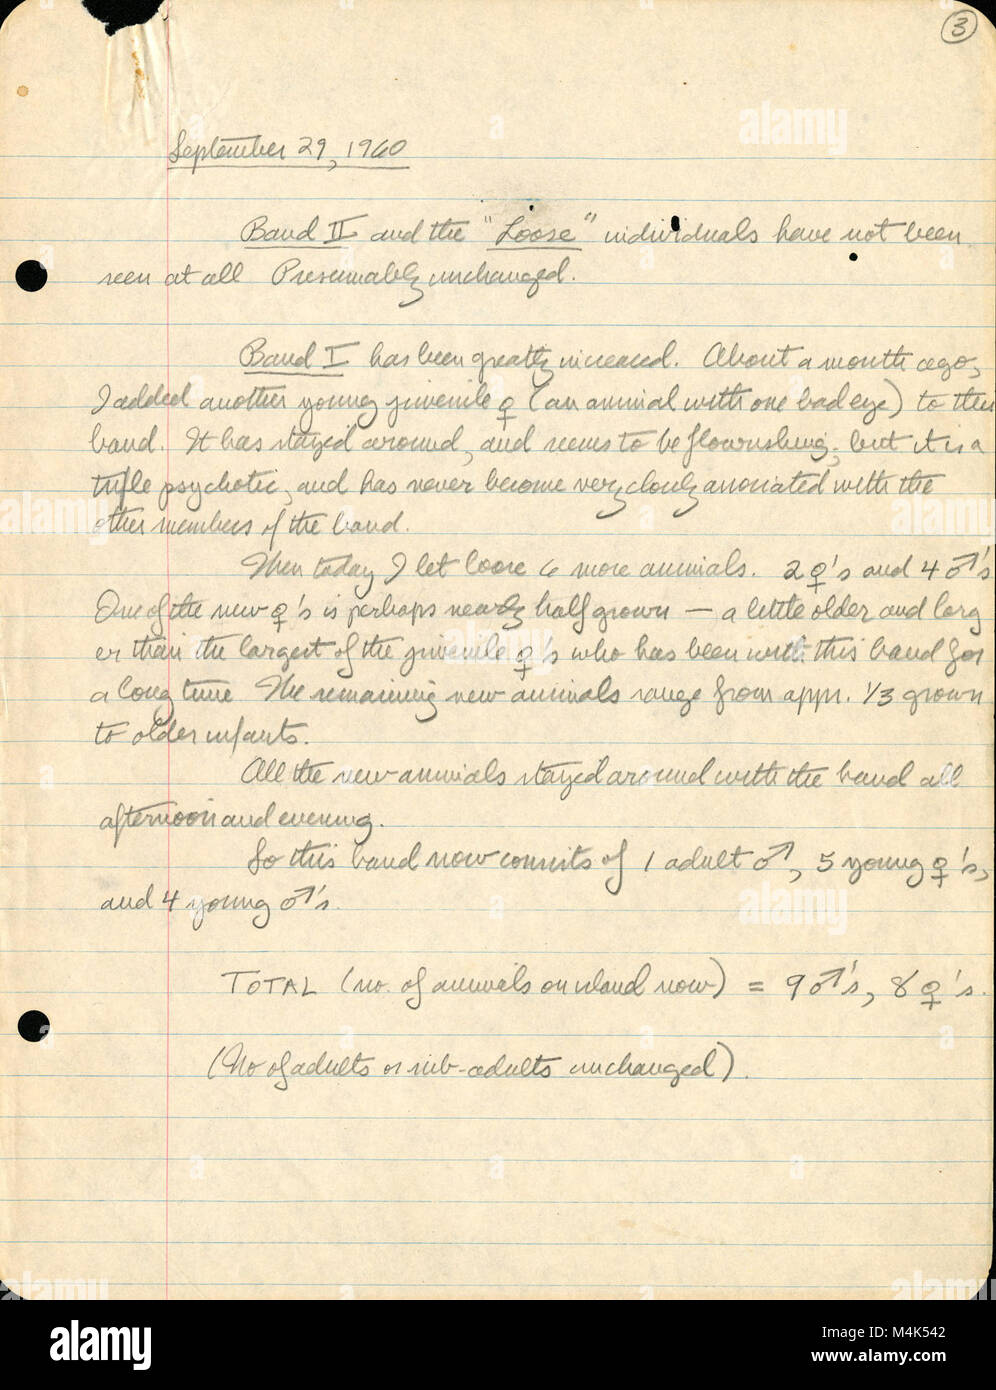 3
September 29, 1960
Band II and the "Loose" individuals have not been
seen at all Presumably unchanged.
Band I has been greatly increased. About a month ago,
I added another young juvenile ♀ (an animal with one bad eye) to this
band. It has stayed around, and seems to be flourishing; but it is a
trifle psychotic, and has never become very closely associated with the
other members of the band.
Then today I let loose 6 more animals. 2 ♀'s and 4 ♂'s
One of the new ♀'s is perhaps nearly half grown — a little older and larg
er than the largest of the juvenile ♀'s who has been with this band for
a long time The remaining new animals range from appr. 1/3 grown
to older infants.
All the new animals stayed around with the band all
afternoon and evening.
So this band now consists of 1 adult ♂, 5 young ♀'s,
and 4 young ♂'s.
TOTAL (no. of animals on island now) = 9 ♂'s, 8 ♀'s.
(No of adults or sub-adults unchanged).
alamy
Image ID: M4K542
www.alamy.com